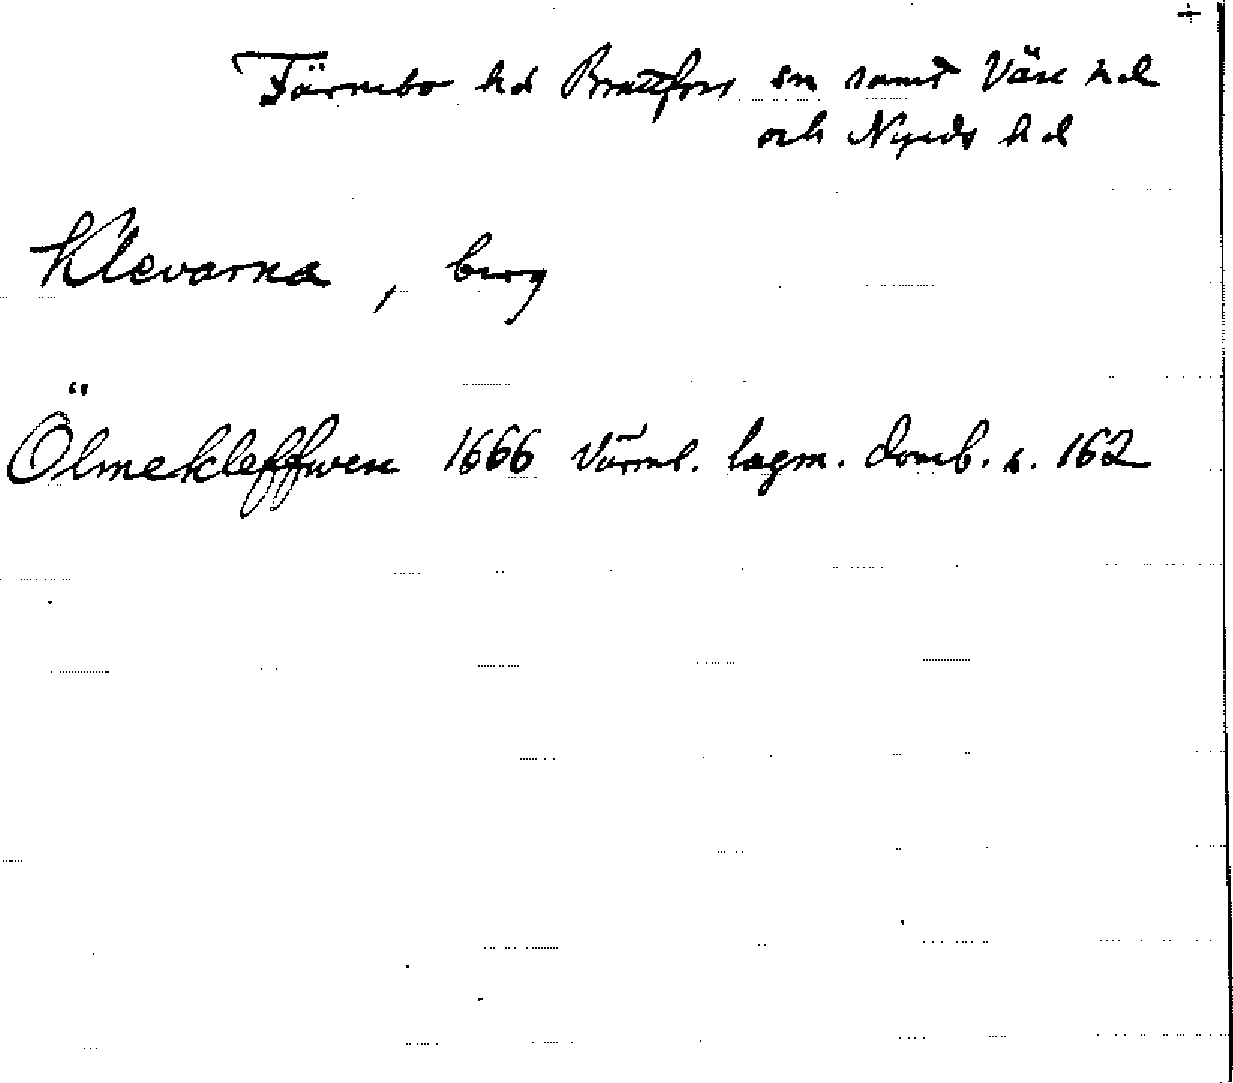 Färnebo hd Brattfors sn samt Väse hd
och Nyeds hd
Klevarna, berg
Ölmekleffwen 1666 Värml. lagm. domb. s. 162